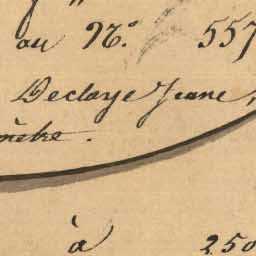 au N.° 557
Declaye Jeanne,
à 250